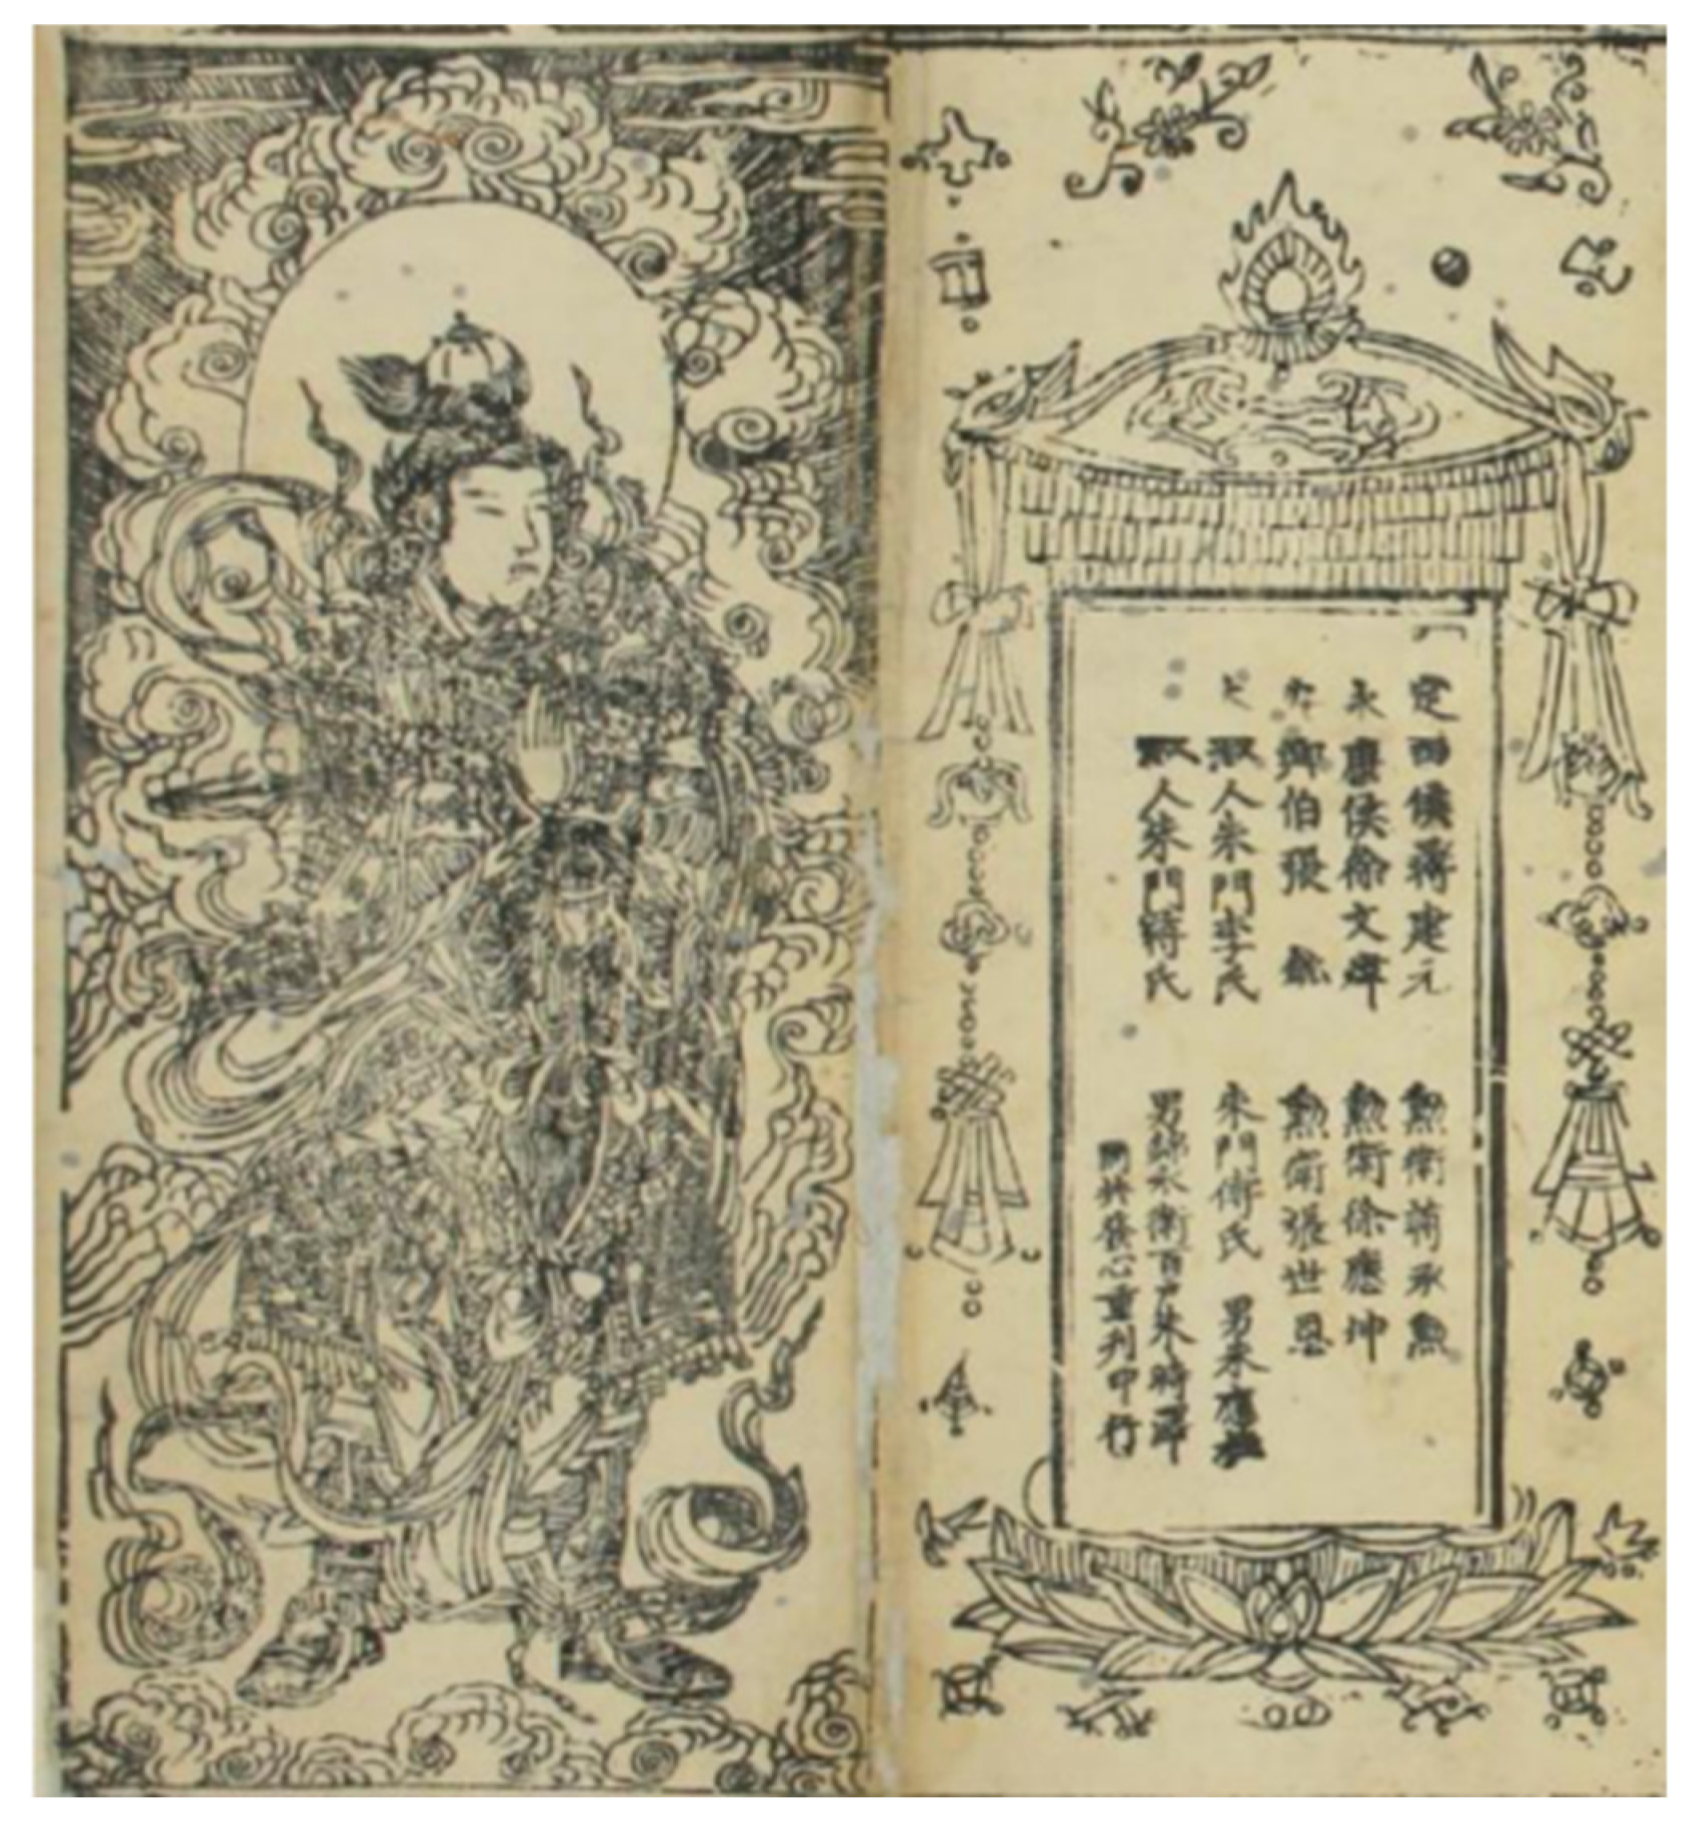 定西侯蔣建元 勲衛蔣承勲
永康侯徐文煒 勲衛徐應坤
鄉伯張 勲衛張世恩
淑人朱門李氏 朱門衛氏 男朱應
淑人朱門蔣氏 男錦衣衛百戶朱時
同共發心重刋印行